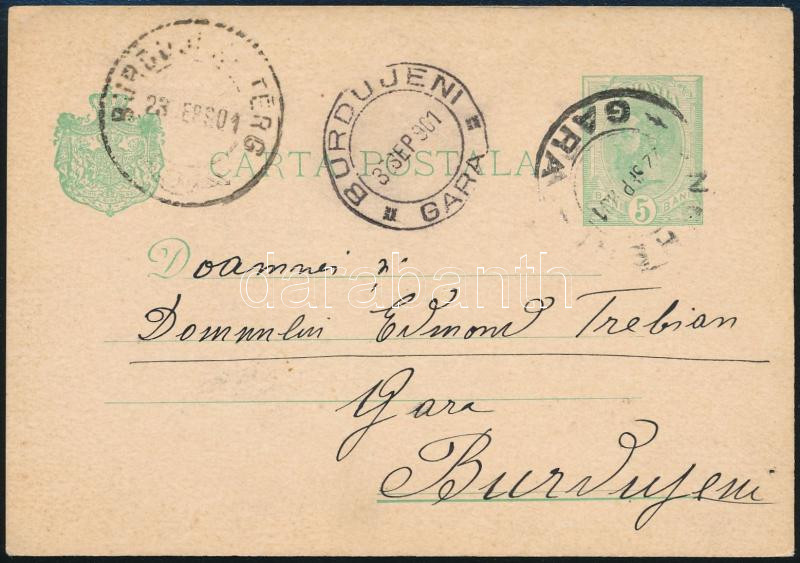 BURDUJENI TÊRG
23 SEP 901
BURDUJENI
3 SEP 901
GARA
GARA
SEP
CARTA POSTALA
BANI 5 BANI
Doamnei și
darabanth
Domnului Edmond Trebian
Gara
Burdujeni